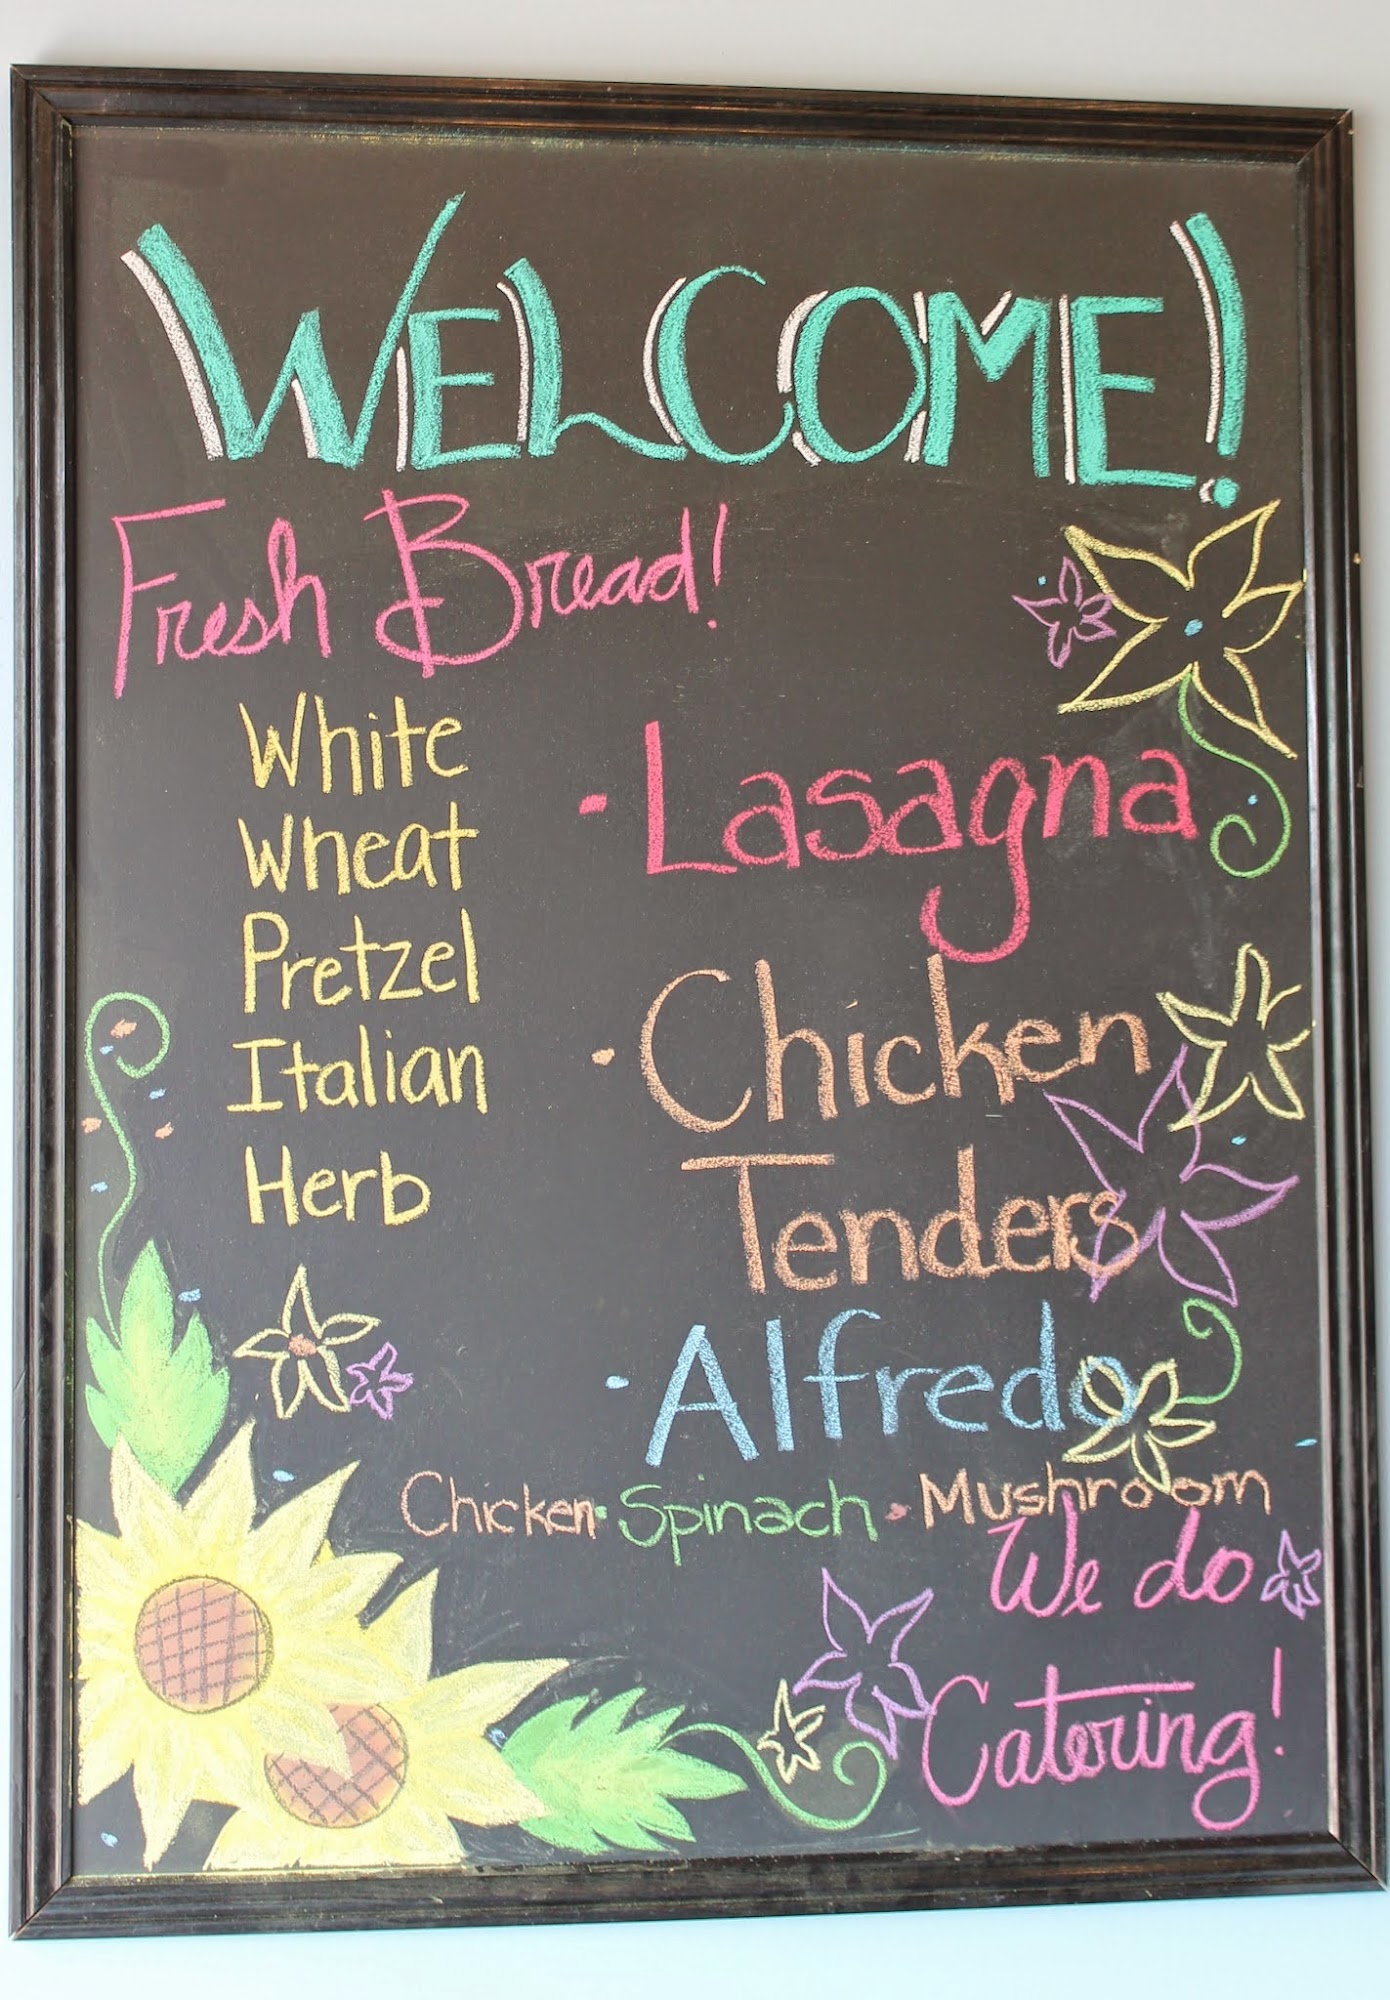 WELCOME!
Fresh Bread!
White
Wheat
Pretzel
Italian
Herb
· Lasagna
· Chicken
Tenders
· Alfredo
Chicken · Spinach · Mushroom
We do
Catering!